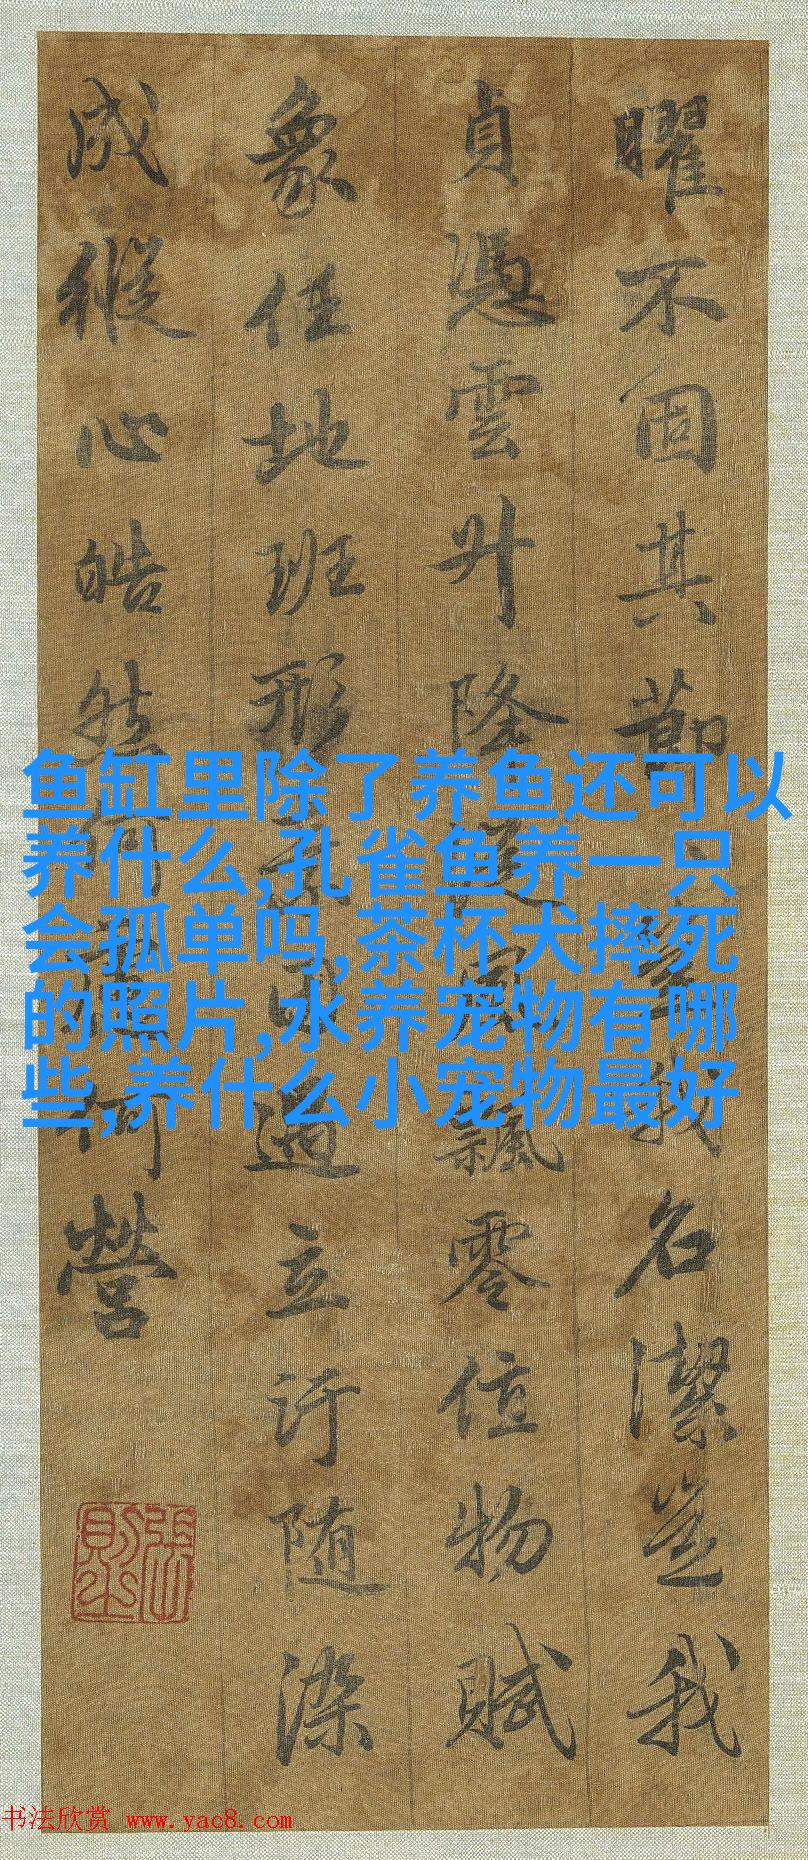 曜不固其節我名潔豈我
貞憑雲升降從風飄零值物賦
象任地班形素因遇立汙随染
成縱心皓然何慮何營
張則之
鱼缸里除了养鱼还可以
养什么,孔雀鱼养一只
会孤单吗,茶杯犬摔死
的照片,水养宠物有哪
些,养什么小宠物最好
书法欣赏 www.yac8.com